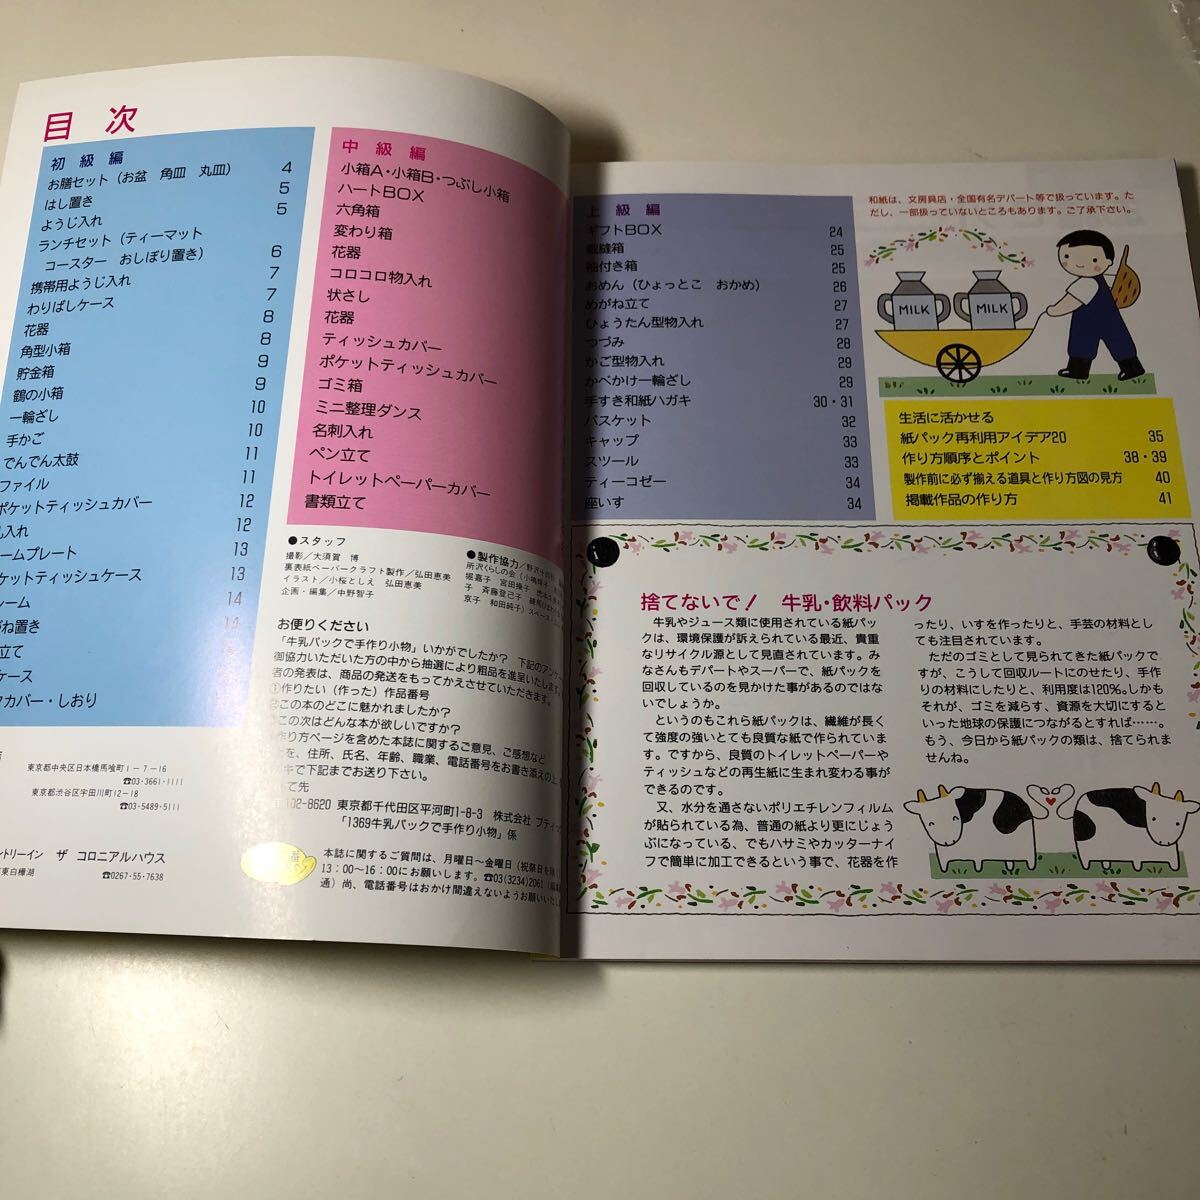 目次
初級編
お膳セット(お盆 角皿 丸皿) 4
はし置き 5
ようじ入れ 5
ランチセット(ティーマット
コースター おしぼり置き) 6
携帯用ようじ入れ 7
わりばしケース 7
花器 8
角型小箱 8
貯金箱 9
鶴の小箱 9
一輪ざし 10
手かご 10
でんでん太鼓 11
ファイル 11
ポケットティッシュカバー 12
入れ 12
ームプレート 13
ケットティッシュケース 13
レーム 14
がね置き
立て
ケース
クカバー・しおり
東京都中央区日本橋馬喰町1-7-16
☎03・3661・1111
東京都渋谷区宇田川町12-18
☎03・5489・5111
ントリーイン ザ コロニアルハウス
東白樺湖 ☎0267・55・7638
中級編
小箱A・小箱B・つぶし小箱
ハートBOX
六角箱
変わり箱
花器
コロコロ物入れ
状さし
花器
ティッシュカバー
ポケットティッシュカバー
ゴミ箱
ミニ整理ダンス
名刺入れ
ペン立て
トイレットペーパーカバー
書類立て
●スタッフ
撮影/大須賀 博
裏表紙ペーパークラフト製作/弘田恵美
イラスト/小桜としえ 弘田恵美
企画・編集/中野智子
●製作協力/野沢
所沢くらしの会(小嶋
堀嘉子 宮田操子
子 斉藤登己子
京子 和田純子)
お便りください
「牛乳パックで手作り小物」いかがでしたか? 下記のアンケー
御協力いただいた方の中から抽選により粗品を進呈いたします。
者の発表は、商品の発送をもってかえさせていただきます。
①作りたい(作った)作品番号
②この本のどこに魅かれましたか?
③この次はどんな本が欲しいですか?
作り方ページを含めた本誌に関するご意見、ご感想など
を、住所、氏名、年齢、職業、電話番号をお書き添えの上
キで下記までお送り下さい。
て先
〒102-8620 東京都千代田区平河町1-8-3 株式会社 ブティッ
「1369牛乳パックで手作り小物」係
本誌に関するご質問は、月曜日~金曜日(祝祭日を除
13:00~16:00にお願いします。☎03(3234)2061
通)尚、電話番号はおかけ間違えないようお願いいたし
上級編
ギフトBOX 24
裁縫箱 25
袖付き箱 25
おめん(ひょっとこ おかめ) 26
めがね立て 27
ひょうたん型物入れ 27
つづみ 28
かご型物入れ 29
かべかけ一輪ざし 29
手すき和紙ハガキ 30・31
バスケット 32
キャップ 33
スツール 33
ティーコゼー 34
座いす 34
和紙は、文房具店・全国有名デパート等で扱っています。た
だし、一部扱っていないところもあります。ご了承下さい。
MILK MILK
生活に活かせる
紙パック再利用アイデア20 35
作り方順序とポイント 38・39
製作前に必ず揃える道具と作り方図の見方 40
掲載作品の作り方 41
捨てないで! 牛乳・飲料パック
牛乳やジュース類に使用されている紙パッ
クは、環境保護が訴えられている最近、貴重
なリサイクル源として見直されています。み
なさんもデパートやスーパーで、紙パックを
回収しているのを見かけた事があるのではな
いでしょうか。
というのもこれら紙パックは、繊維が長く
て強度の強いとても良質な紙で作られていま
す。ですから、良質のトイレットペーパーや
ティッシュなどの再生紙に生まれ変わる事が
できるのです。
又、水分を通さないポリエチレンフィルム
が貼られている為、普通の紙より更にじょう
ぶになっている、でもハサミやカッターナイ
フで簡単に加工できるという事で、花器を作
ったり、いすを作ったりと、手芸の材料とし
ても注目されています。
ただのゴミとして見られてきた紙パックで
すが、こうして回収ルートにのせたり、手作
りの材料にしたりと、利用度は120%。しかも
それが、ゴミを減らす、資源を大切にすると
いった地球の保護につながるとすれば……。
もう、今日から紙パックの類は、捨てられま
せんね。